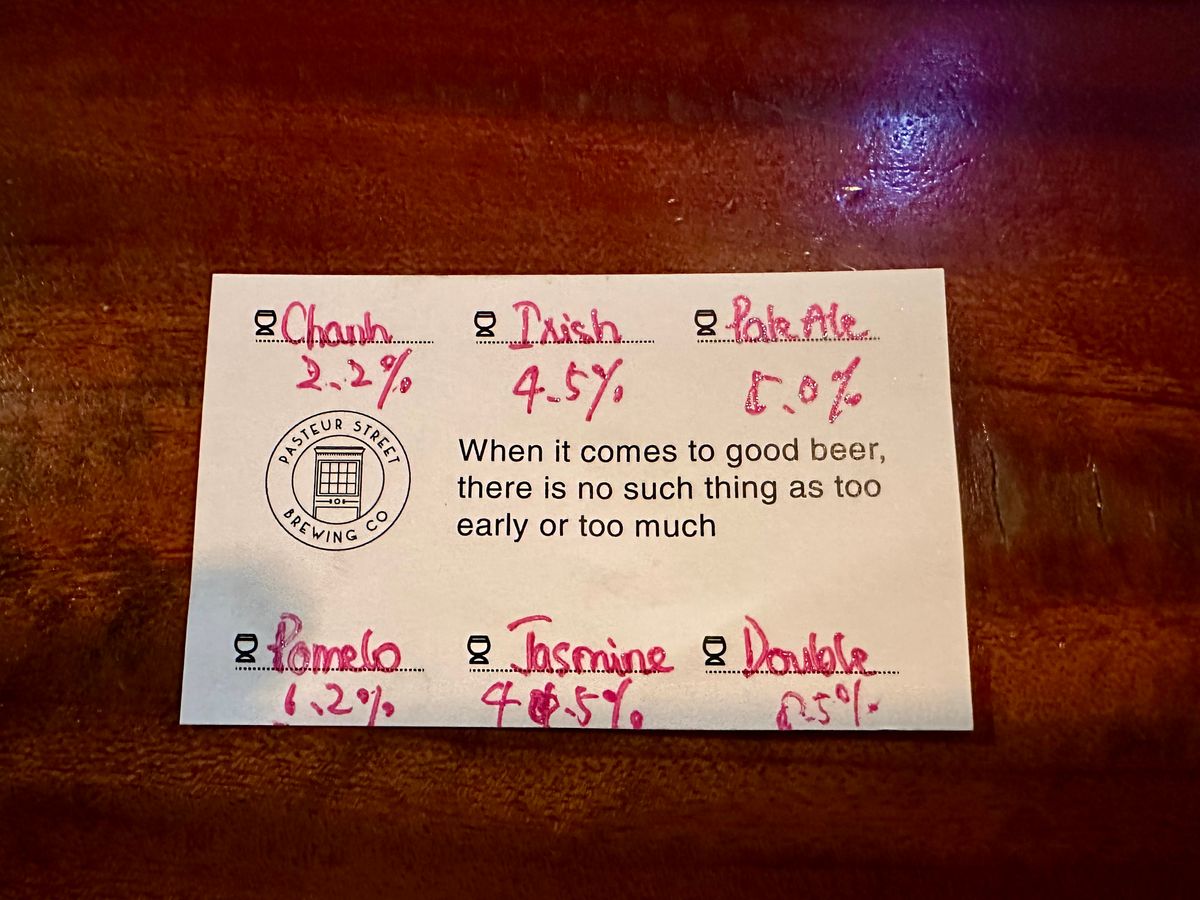 Chanh Irish Pale Ale
2.2% 4.5% 5.0%
PASTEUR STREET
BREWING CO
When it comes to good beer,
there is no such thing as too
early or too much
Pomelo Jasmine Double
6.2% 4.5%